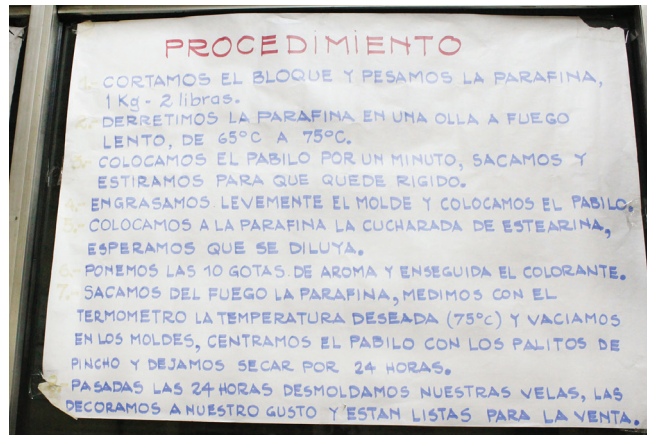 PROCEDIMIENTO
1.- CORTAMOS EL BLOQUE Y PESAMOS LA PARAFINA,
1 Kg - 2 libras.
2.- DERRETIMOS LA PARAFINA EN UNA OLLA A FUEGO
LENTO, DE 65°C A 75°C.
3.- COLOCAMOS EL PABILO POR UN MINUTO, SACAMOS Y
ESTIRAMOS PARA QUE QUEDE RIGIDO.
4.- ENGRASAMOS LEVEMENTE EL MOLDE Y COLOCAMOS EL PABILO.
5.- COLOCAMOS A LA PARAFINA LA CUCHARADA DE ESTEARINA,
ESPERAMOS QUE SE DILUYA.
6.- PONEMOS LAS 10 GOTAS DE AROMA Y ENSEGUIDA EL COLORANTE.
7.- SACAMOS DEL FUEGO LA PARAFINA, MEDIMOS CON EL
TERMOMETRO LA TEMPERATURA DESEADA (75°C) Y VACIAMOS
EN LOS MOLDES, CENTRAMOS EL PABILO CON LOS PALITOS DE
PINCHO Y DEJAMOS SECAR POR 24 HORAS.
PASADAS LAS 24 HORAS DESMOLDAMOS NUESTRAS VELAS, LAS
DECORAMOS A NUESTRO GUSTO Y ESTAN LISTAS PARA LA VENTA.